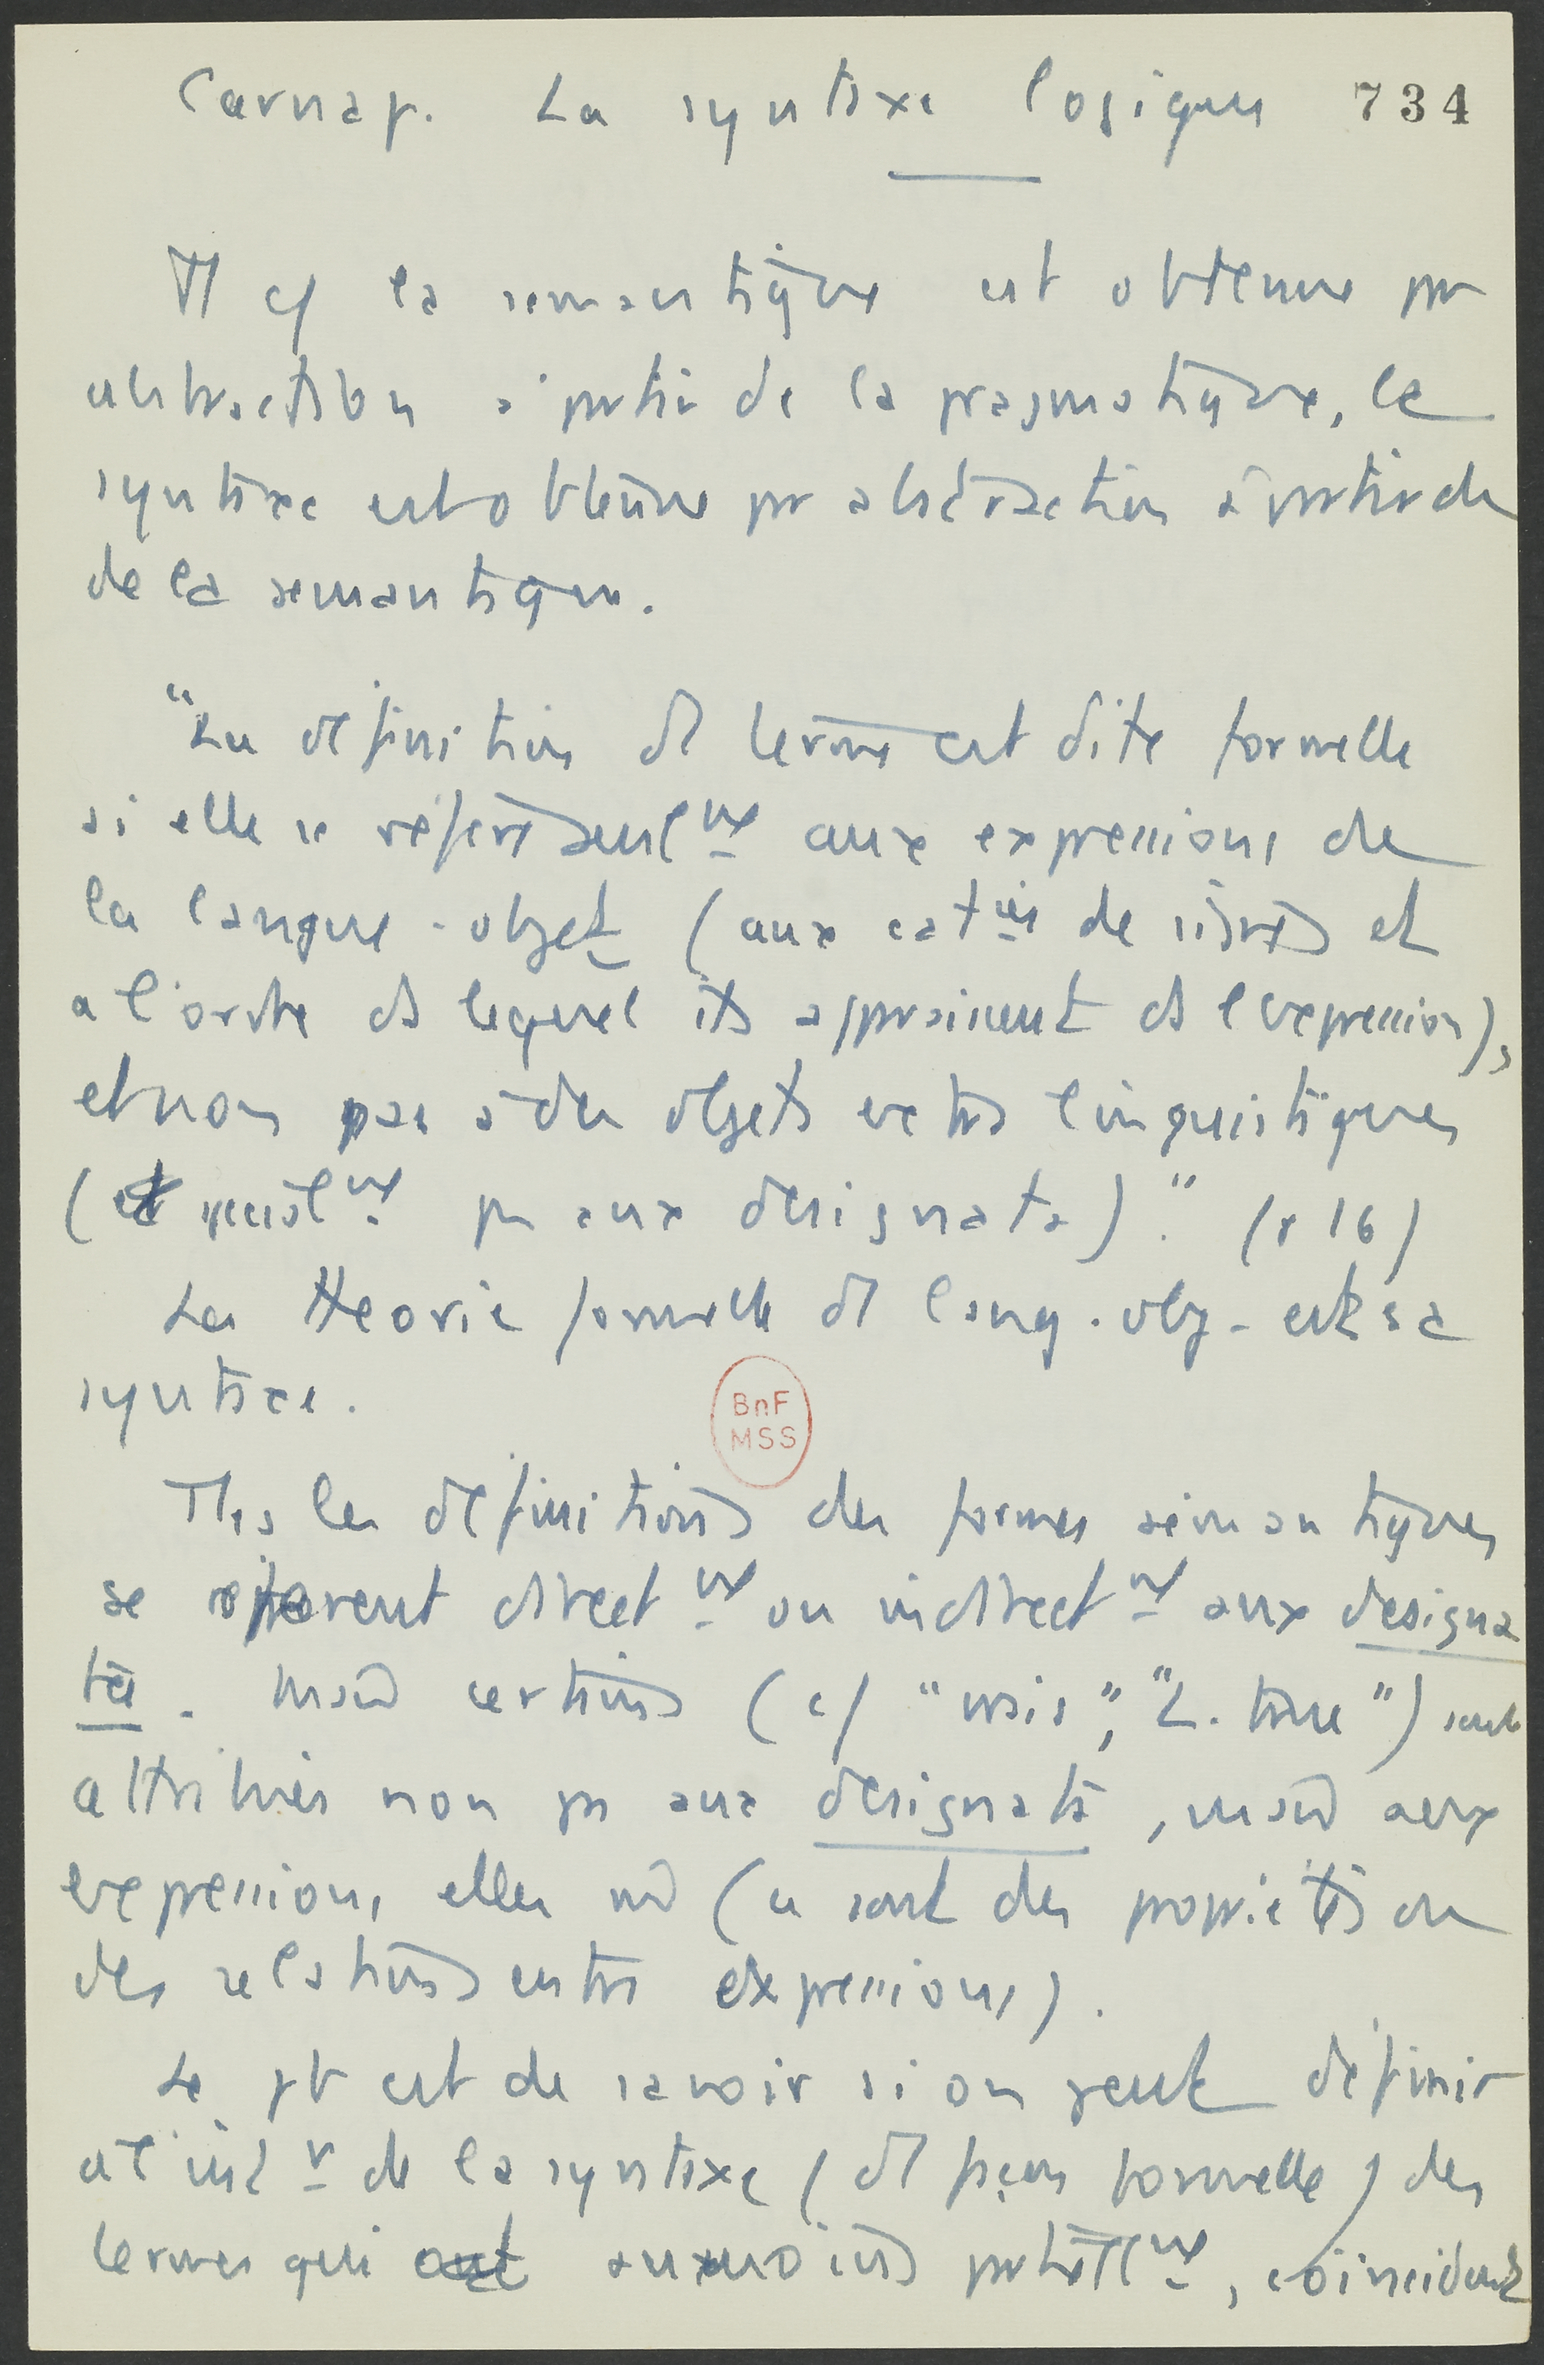 Carnap. La syntaxe logique 734
Tt cf la semantique est obtenue par
abstraction à partir de la pragmatique, la
syntaxe est obtenue par abstraction à partir de
de la semantique.
"La définition d'1 terme est dite formelle
si elle se réfère seulᵐᵗ aux expressions de
la langue-objet (aux catᵉˢ de signes et
a l'ordre ds lequel ils apparaissent ds l'expression),
et non pas à des objets extra linguistiques
(et specialᵐᵗ pas aux designata)." (p 16)
La theorie formelle d'1 lang. obj. est sa
syntaxe.
Ttes les définitions des termes sémantiques
se referent directᵐᵗ ou indirectᵐᵗ aux designa
ta. Mais certains (cf "vrais", "L. true") sont
attribués non pas aux designata, mais aux
expressions elles m̂ (ce sont des propriétés ou
des relations entre expressions).
Le pb est de savoir si on peut définir
a l'intʳ de la syntaxe (d'1 façon formelle) des
termes qui au moins partiellᵐᵗ, coincident
BnF
MSS